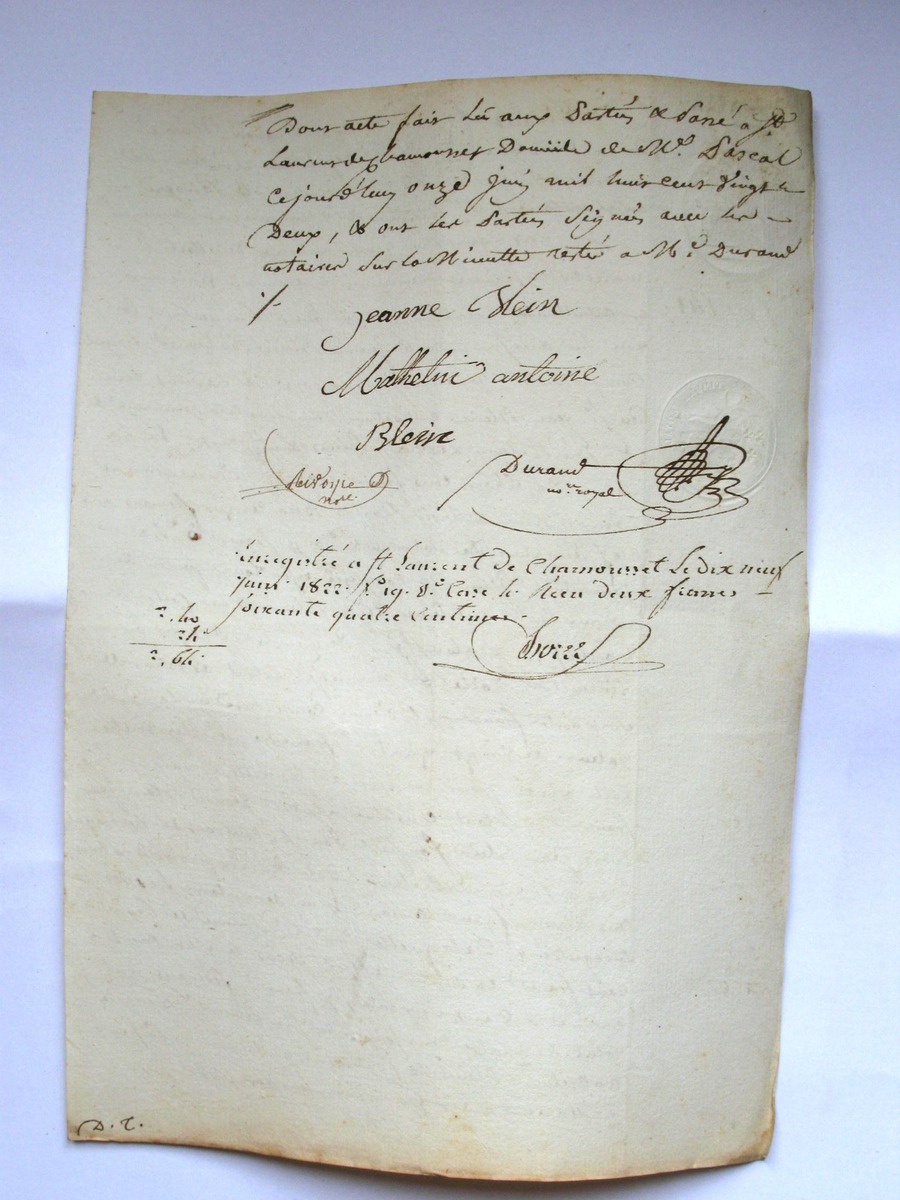 Dont acte fait lû aux Parties & Passé à St
Laurent de chamousset Domicile de Me. Pascal
Cejourd'huy onze juin mil huit cent Vingt
Deux, & ont les Parties Signés avec les
notaires Sur la Minutte restée à Me. Durand
./.
jeanne Blein
Mathelin antoine
Blein
Durand
nore. royal
nore.
enregistré a St Laurent de Chamousset Le dix neuf
juin 1822. fo. 19. Vo. Case 4. Recu deux francs
soixante quatre Centimes.
2. 40
24
2. 64
D. T.